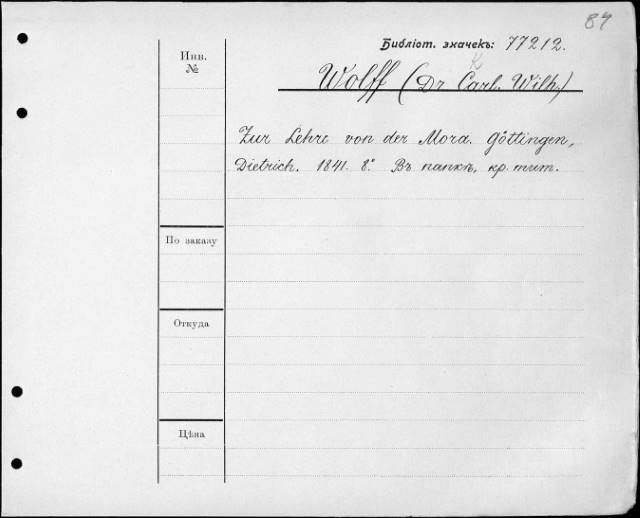 84
Библіот. значекъ: 77212.
Инв.
№
K
Wolff (Dr Carl. Wilh.)
Zur Lehre von der Mora. Göttingen,
Dietrich. 1841. 8°. Въ папкѣ, кр. тит.
По заказу
Откуда
Цѣна